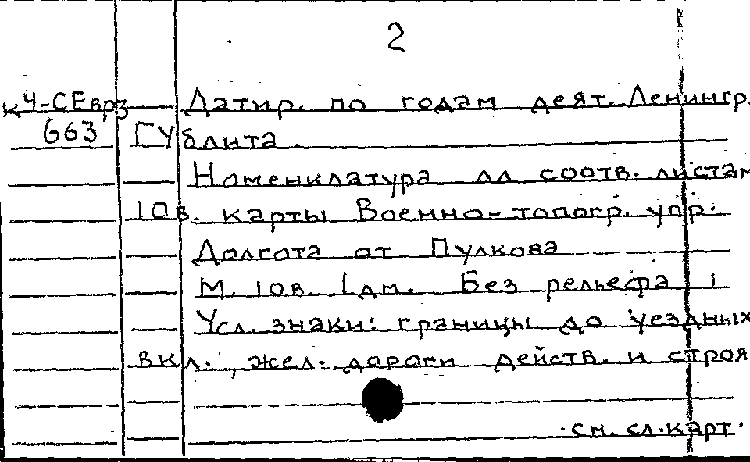 2
К4-СЕврз Датир. по годам деят. Ленингр.
663 Гублита.
Номенклатура дл соотв. листам
10в. карты Военно-топогр. упр.
Долгота от Пулкова
М. 10в. 1дм. Без рельефа
Усл. знаки: границы до уездных
вкл., жел. дороги действ. и строя
см. сл. карт.